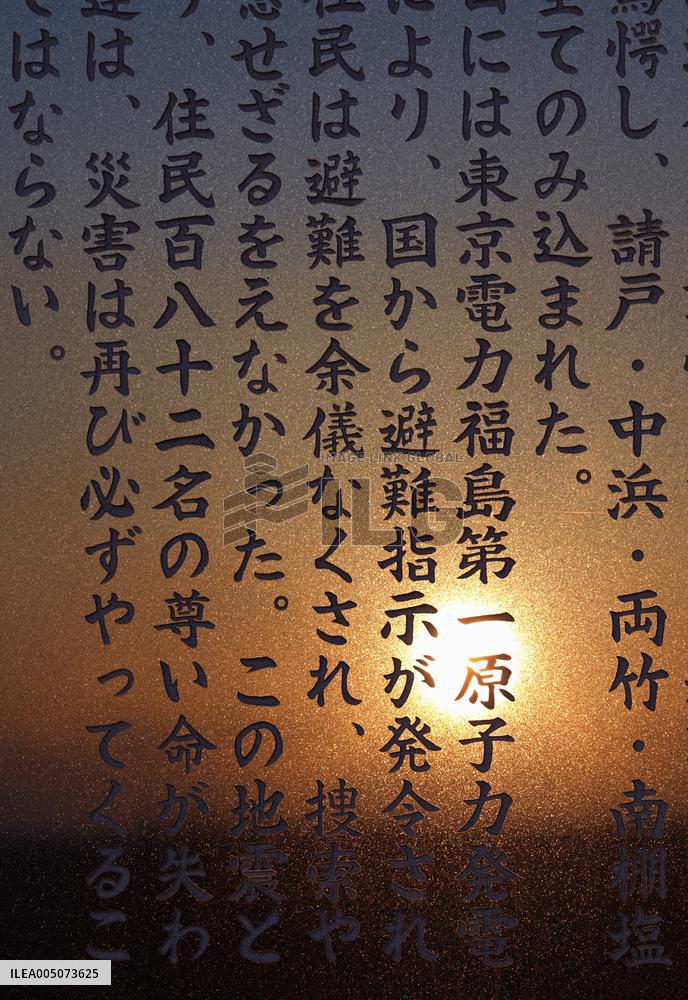 驚愕し、請戸・中浜・両竹・南棚塩
てのみ込まれた。
日には東京電力福島第一原子力発電
により、国から避難指示が発令され
住民は避難を余儀なくされ、捜索や
念せざるをえなかった。この地震と
り、住民百八十二名の尊い命が失わ
達は、災害は再び必ずやってくるこ
てはならない。
IMAGE LINK GLOBAL
ILG
ILEA005073625